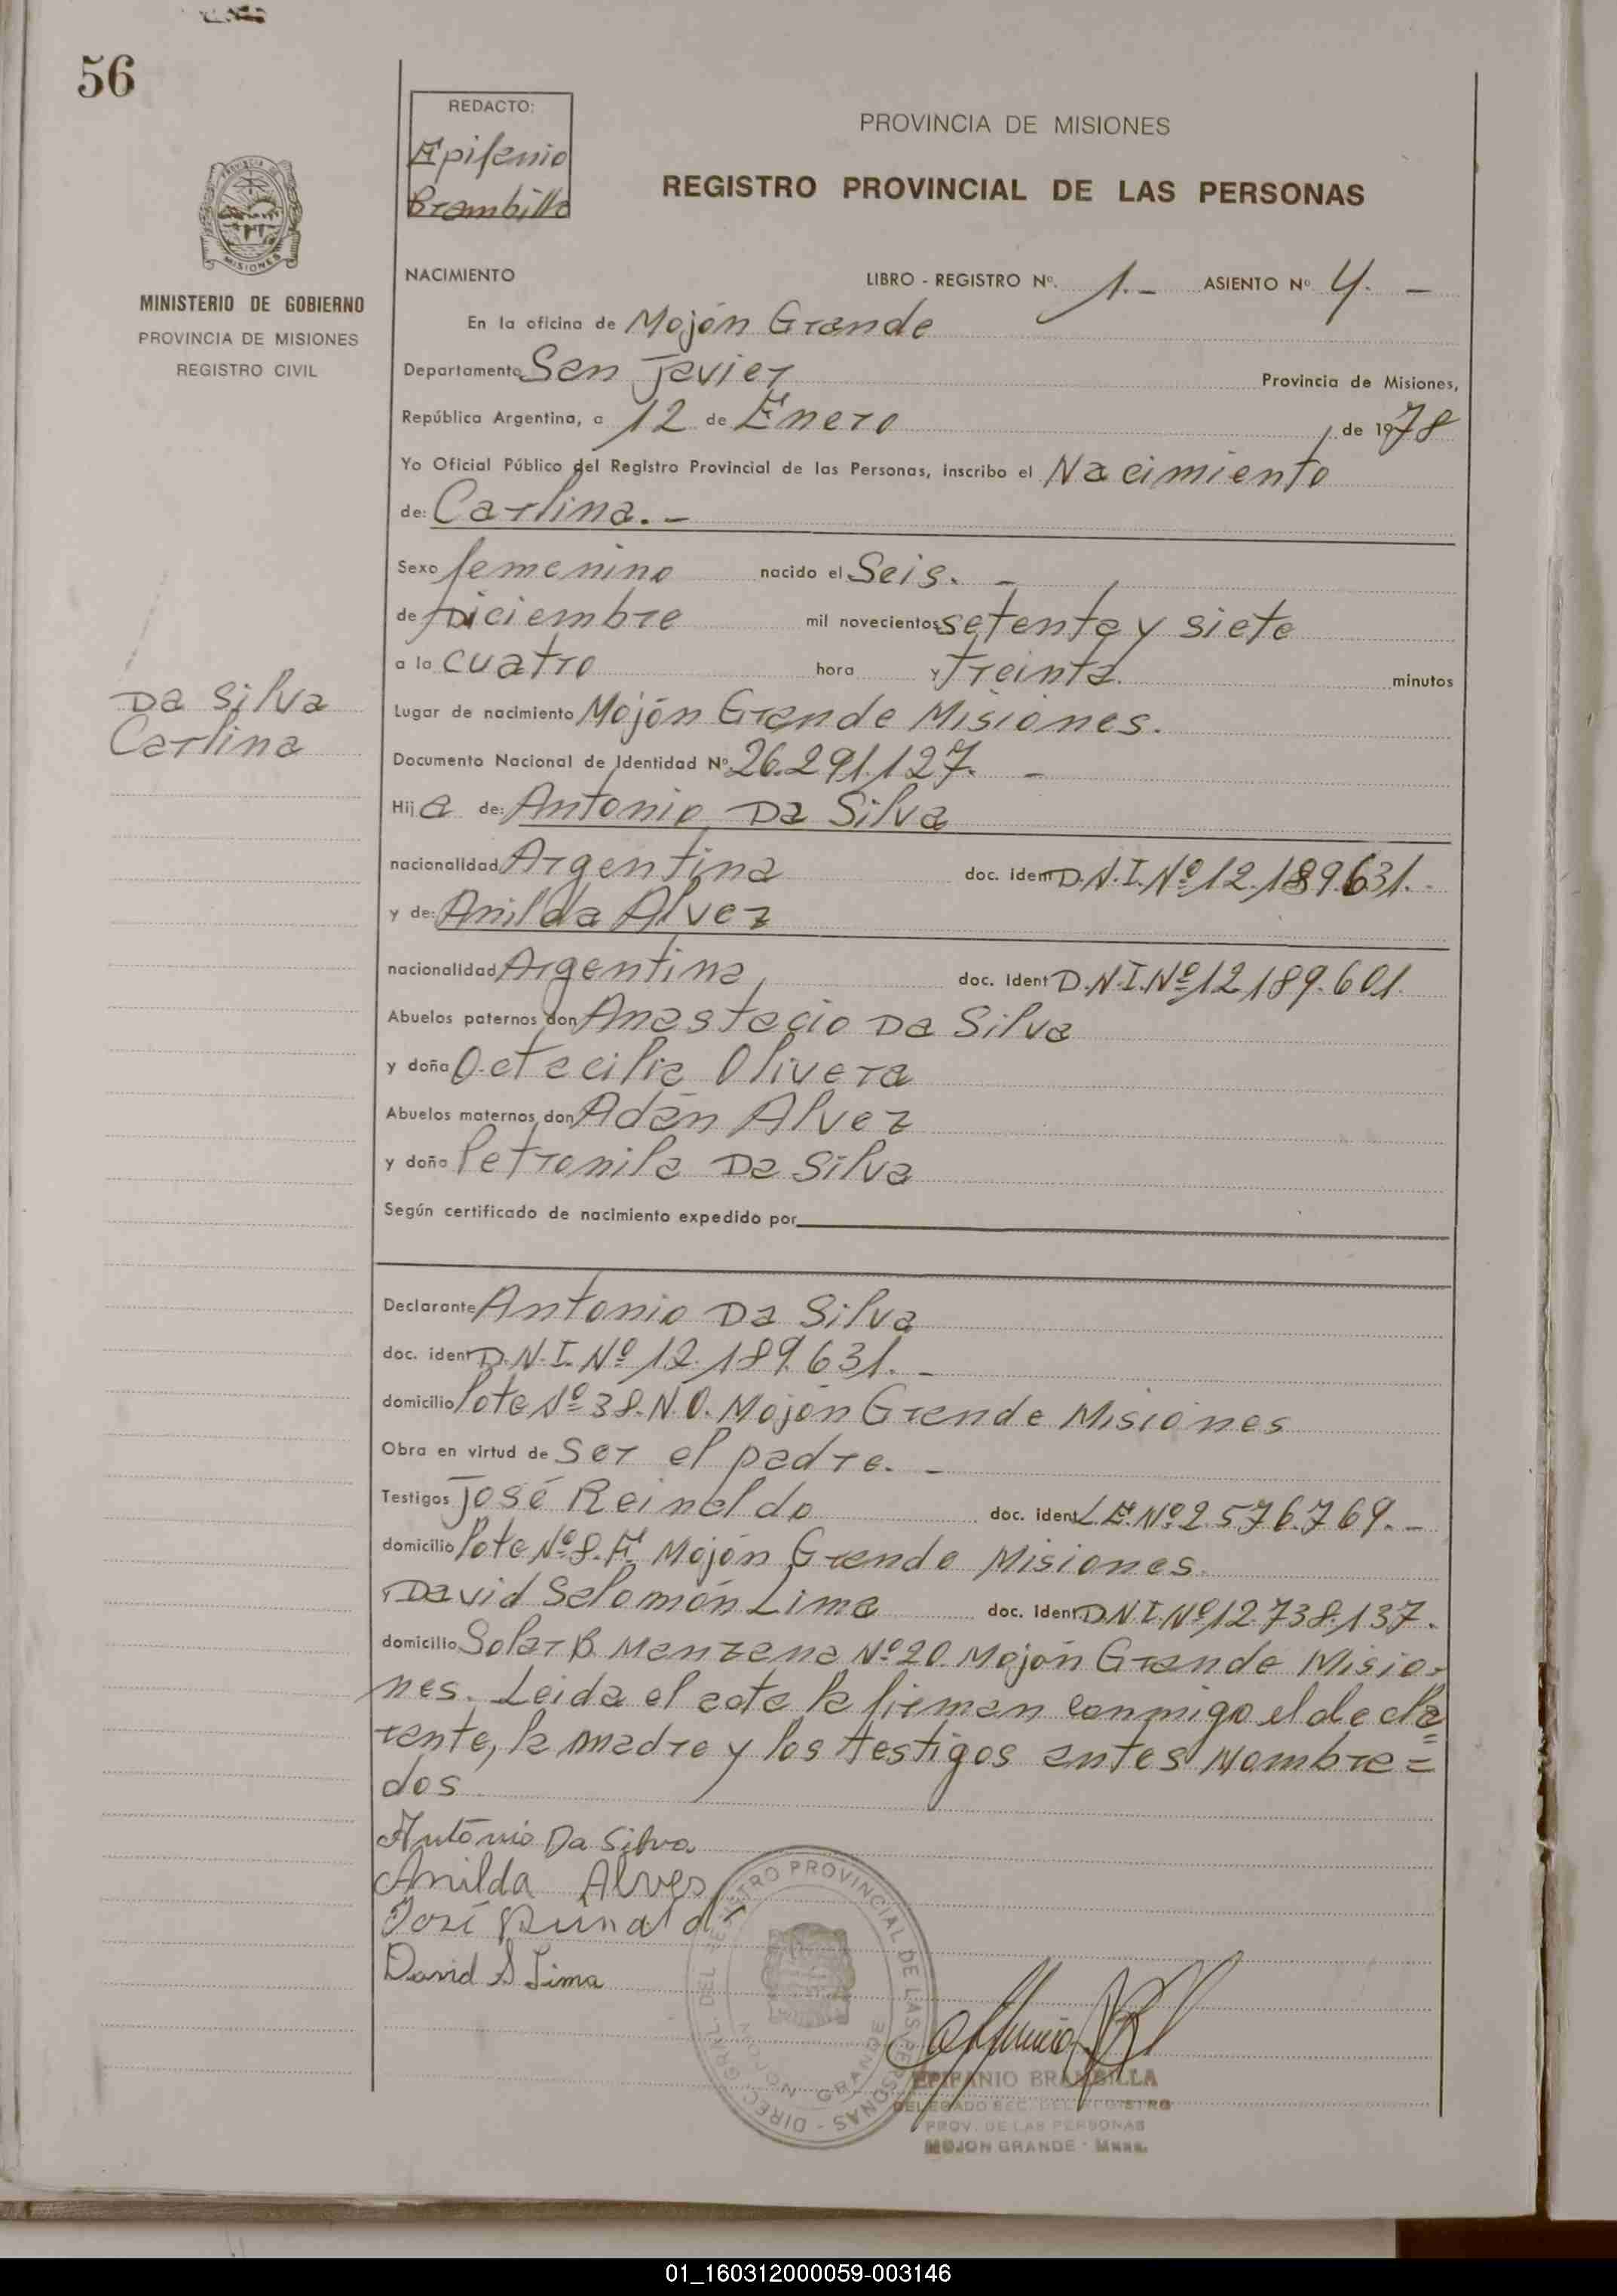 56
REDACTO:
Epifanio
Brambilla
PROVINCIA DE MISIONES
REGISTRO PROVINCIAL DE LAS PERSONAS
MISIONES
MINISTERIO DE GOBIERNO
PROVINCIA DE MISIONES
REGISTRO CIVIL
NACIMIENTO LIBRO - REGISTRO Nº. 1.- ASIENTO Nº 4. -
En la oficina de Mojón Grande
Departamento San Javier Provincia de Misiones,
República Argentina, a 12 de Enero de 1978
Yo Oficial Público del Registro Provincial de las Personas, inscribo el Nacimiento
de: Carlina. -
Sexo femenino nacido el Seis. -
de Diciembre mil novecientos setenta y siete
a la cuatro hora y treinta minutos
Da Silva
Carlina
Lugar de nacimiento Mojón Grande Misiones.
Documento Nacional de Identidad Nº 26.291.127. -
Hij a de: Antonio Da Silva
nacionalidad Argentina doc. ident D.N.I.Nº 12.189.631.
y de: Anilda Alvez
nacionalidad Argentina doc. ident D.N.I.Nº 12.189.601.
Abuelos paternos don Anastacio Da Silva
y doña Octacilia Olivera
Abuelos maternos don Adán Alvez
y doña Petronila Da Silva
Según certificado de nacimiento expedido por
Declarante Antonio Da Silva
doc. ident D.N.I. Nº 12.189.631. -
domicilio lote Nº 38.N.O. Mojón Grande Misiones
Obra en virtud de ser el padre. -
Testigos José Reinaldo doc. ident L.E.Nº 2.576.769. -
domicilio lote Nº 8.F. Mojón Grande Misiones.
y David Salomón Lima doc. ident D.N.I.Nº 12.738.137.
domicilio Solar B Manzana Nº 20. Mojón Grande Misio-
nes. Leida el acta la firman conmigo el decla=
rante, la madre y los testigos antes nombra=
dos
Antonio Da Silva
Anilda Alves
José Reinaldo
David S Lima
DIREC. GRAL. DEL REGISTRO PROVINCIAL DE LAS PERSONAS -
MOJON GRANDE
EPIFANIO BRAMBILLA
DELEGADO SEC. DEL REGISTRO
PROV. DE LAS PERSONAS
MOJON GRANDE - Mnes.
01_160312000059-003146